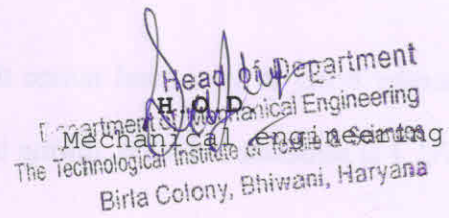 Head of Department
H.O.D
Department of Mechanical Engineering
Mechanical engineering
The Technological Institute of Textile & Sciences
Birla Colony, Bhiwani, Haryana